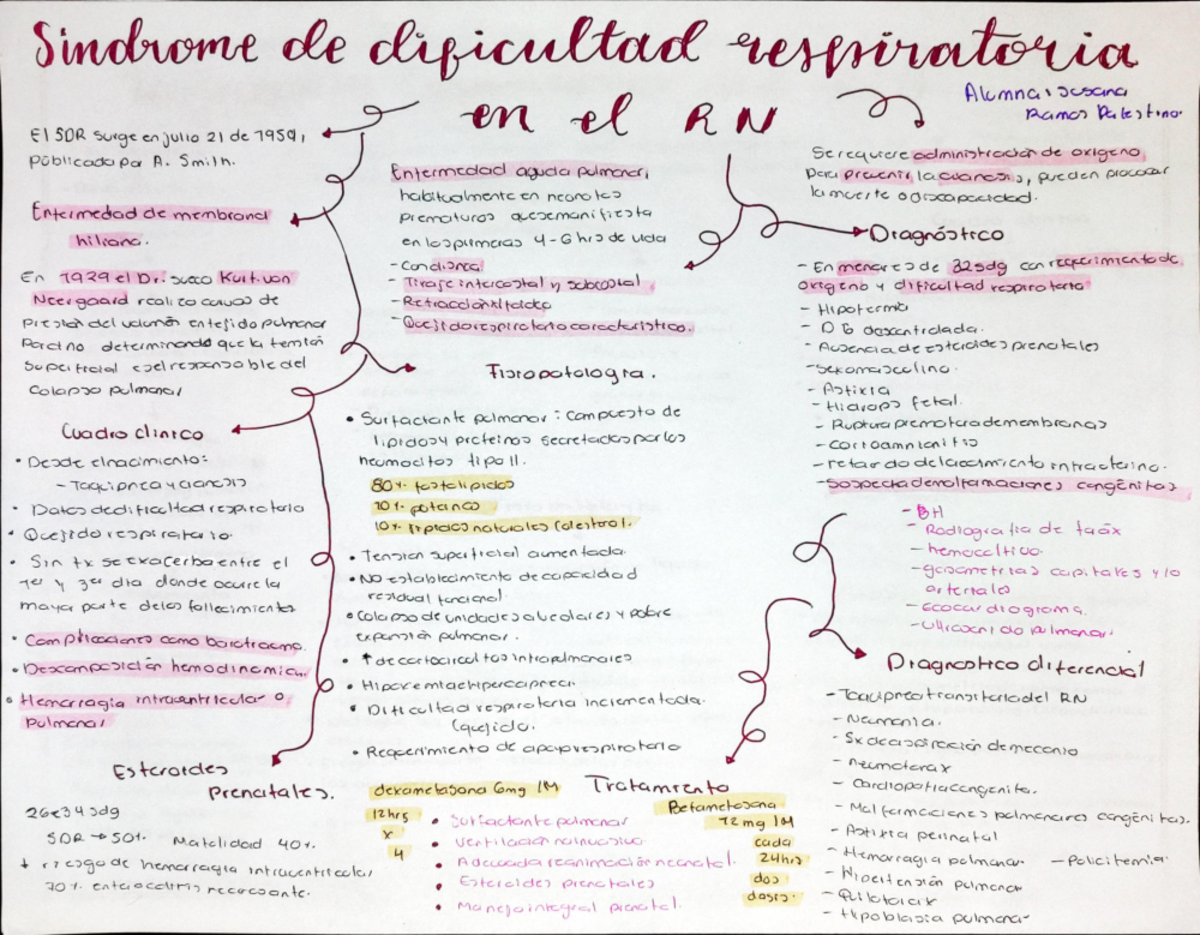 Sindrome de dificultad respiratoria
en el RN
Alumna: Susana
Ramos Palestino.
El SDR surge en julio 21 de 1959,
Públicada por A. Smith.
Enfermedad de membrana
hiliana.
En 1929 el Dr. suizo Kurt von
Neergaard realizo curvas de
presión del volumén en tejido pulmonar
Porcino determinando que la tensión
superficial es el responsable del
colapso pulmonar
Cuadro clinico
• Desde el nacimiento:
- Taquipnea y cianosis
• Datos de dificultad respiratoria
• Quejido respiratorio.
• Sin tx se exacerba entre el
1er y 3er dia donde ocurre la
mayor parte de los fallecimientos
• Complicaciones como barotrauma.
• Descomposición hemodinamica.
• Hemorragia intraventricular o
Pulmonar
Esteroides
Prenatales.
26 e 34 sdg
SDR → 50%. Matalidad 40%.
↓ riesgo de hemorragia intraventricular
70% enterocolitis necrosante.
Enfermedad aguda pulmonar,
habitualmente en neonatos
prematuros que se manifiesta
en los primeras 4-6 hrs de vida
- Con disnea
- Tiraje intercostal y subcostal
- Retracción xifoidea
- Quejido respiratorio característico.
Fisiopatologia.
• Surfactante pulmonar: compuesto de
lipidos y proteinas secretados por los
neumocitos tipo II.
80% fosfolipidos
10%
10% lipidos naturales (colesterol).
• Tension superficial aumentada.
• No establecimiento de capacidad
residual funcional.
• Colapso de unidades alveolares y pobre
expansión pulmonar.
• ↑ de cortocircuitos intrapulmonares
• Hipoxemia e hipercapnea.
• Dificultad respiratoria incrementada.
(quejido.
• Requerimiento de apoyo respiratorio
Tratamiento
dexametasona 6mg IM
12hrs
x
4
• Surfactante pulmonar
• Ventilación no invasiva.
• Adecuada reanimación neonatal.
• Esteroides prenatales
• Manejo integral prenatal.
Betametasona
12 mg IM
cada
24hrs
dos
dosis.
Se requiere administración de oxigeno
para prevenir la cianosis, pueden provocar
la muerte o discapacidad.
Diagnóstico
- En menores de 32sdg con requerimiento de
oxigeno y dificultad respiratoria
- Hipotermia
- DG descontrolada.
- Ausencia de esteroides prenatales
- Sexo masculino.
- Asfixia
- Hidrops fetal.
- Ruptura prematura de membranas
- Corioamnionitis
- retardo del crecimiento intrauterino.
- Sospecha de malformaciones congénitas
- BH
- Radiografia de toráx
- hemocultivo.
- gasometrias capilares y/o
arteriales
- Ecocardiograma.
- Ultrasonido pulmonar.
Diagnostico diferencial
- Taquipnea transitoria del RN
- Neumonia.
- Sx de aspiración de meconio
- neumotorax
- Cardiopatia congenita.
- Malformaciones pulmonares congénitas.
- Asfixia perinatal
- Hemorragia pulmonar. - Policitemia.
- Hipertensión pulmonar
- Quilotorax
- Hipoplasia pulmonar